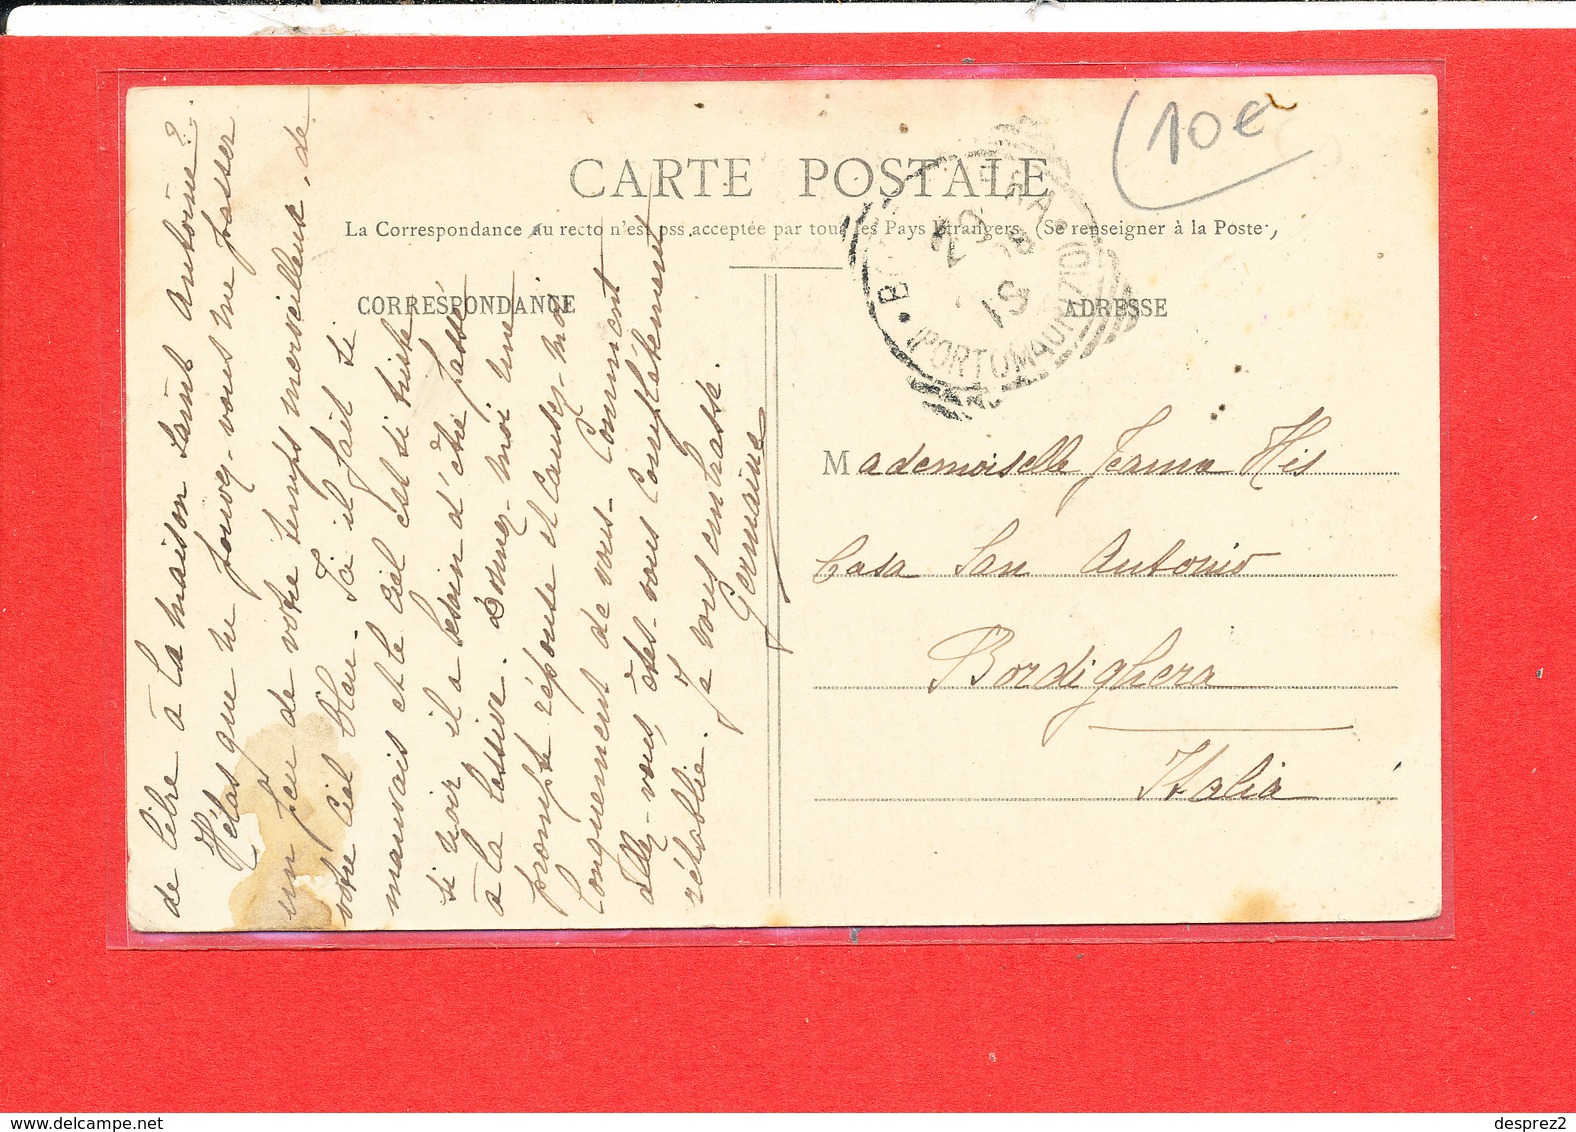 (10€
CARTE POSTALE
La Correspondance au recto n'est pss acceptée par tous les Pays Etrangers (Se renseigner à la Poste,
CORRESPONDANCE
ADRESSE
(PORTOMAURIZIO)
de libre à la maison Saint Antoine?
Hélas que ne pouvez-vous me passer
un peu de votre temps merveilleux, de
votre ciel bleu. Ici il fait si
mauvais et le ciel est si triste
si noir il a besoin d'être passé
à la lessive. Donnez-moi une
prompte réponse et causez-moi
longuement de vous. Comment
allez-vous, êtes-vous complètement
rétablie. Je vous embrasse.
Germaine
Mademoiselle His
Casa San Antonio
Bordighera
Italia
desprez2